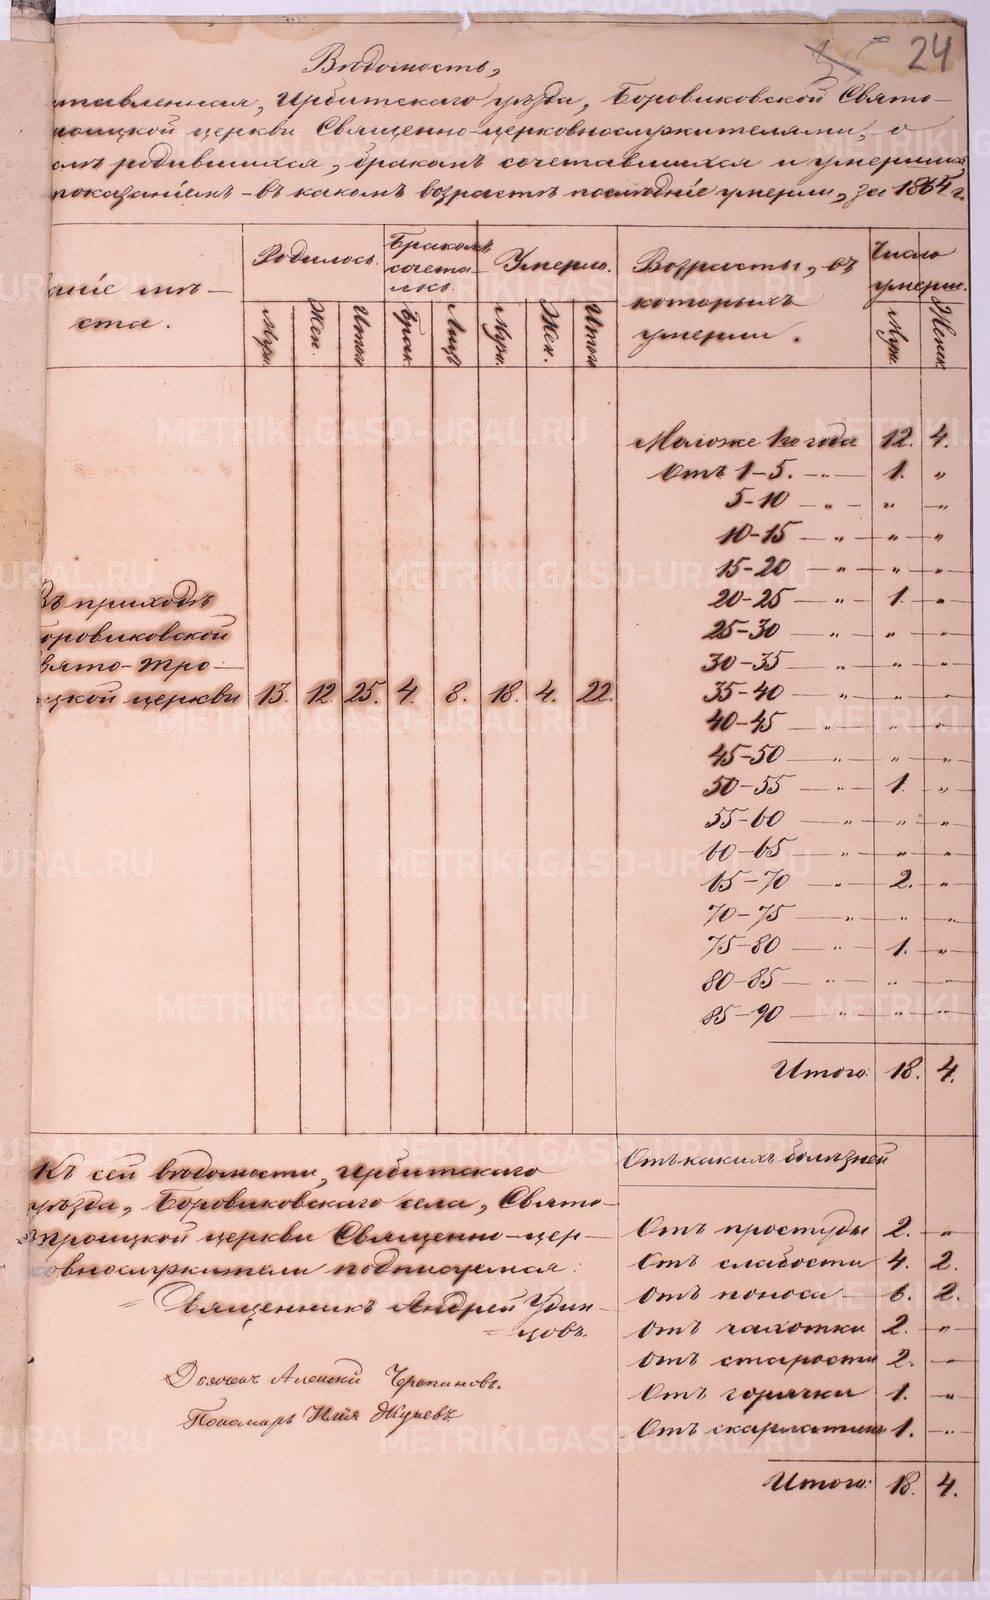 24
Вѣдомость,
ставленная, Ирбитскаго уѣзда, Боровиковской Свято-
роицкой церкви Священно-церковнослужителями, о
родившихся, бракомъ сочетавшихся и умершихъ
показаніемъ - въ какомъ возрастѣ послѣдніе умерли, за 1864 г.
аніе мѣ-
ста.
Родилось.
Муж.
Жен.
Итого
Бракомъ
сочета-
лось.
Брак.
Лицъ
Умерло.
Муж.
Жен.
Итого
Возрасты, въ
которыхъ
умерли.
Число
умерш.
Муж.
Женск.
Моложе 1го года 12. 4.
Отъ 1-5. - „ - 1. „
5-10 - „ - „ - „
10-15 - „ - „ - „
15-20 - „ - „ - „
20-25 - „ - 1. - „
25-30 - „ - „ - „
30-35 - „ - „ - „
35-40 - „ - „ - „
40-45 - „ - „ - „
45-50 - „ - „ - „
50-55 - „ - 1. - „
55-60 - „ - „ - „
60-65 - „ - „ - „
65-70 - „ - 2. - „
70-75 - „ - „ - „
75-80 - „ - 1. - „
80-85 - „ - „ - „
85-90 - „ - „ - „
Итого: 18. 4.
Въ приходѣ
оровиковской
вято-Тро-
цкой церкви 13. 12. 25. 4. 8. 18. 4. 22.
Къ сей вѣдомости, Ирбитскаго
уѣзда, Боровиковскаго села, Свято-
троицкой церкви Священно-цер-
овнослужители подписуемся:
Священникъ Андрей Удин-
цовъ.
Дьячекъ Алексѣй Черепановъ.
Пономарь Илія
Отъ какихъ болѣзней
Отъ простуды 2. „
Отъ слабости 4. 2.
Отъ поноса - 6. 2.
Отъ чахотки 2. - „
Отъ старости 2. - „
Отъ горячки 1. - „
Отъ скарлатины 1. - „
Итого: 18. 4.
METRIKI.GASO-URAL.RU